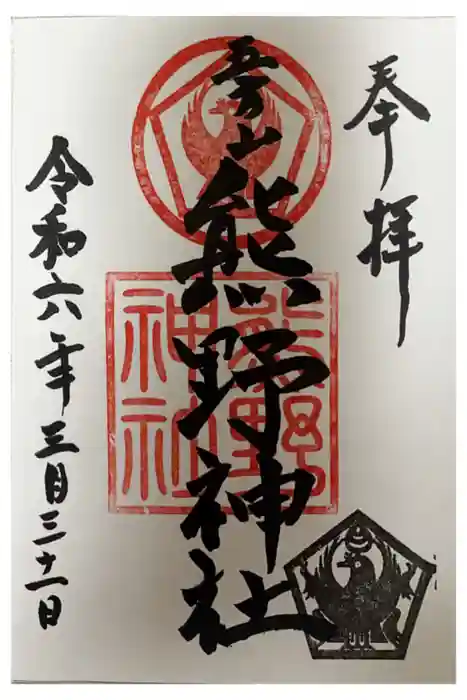 奉拝
五方山熊野神社
熊野
神社
令和六年三月三十一日